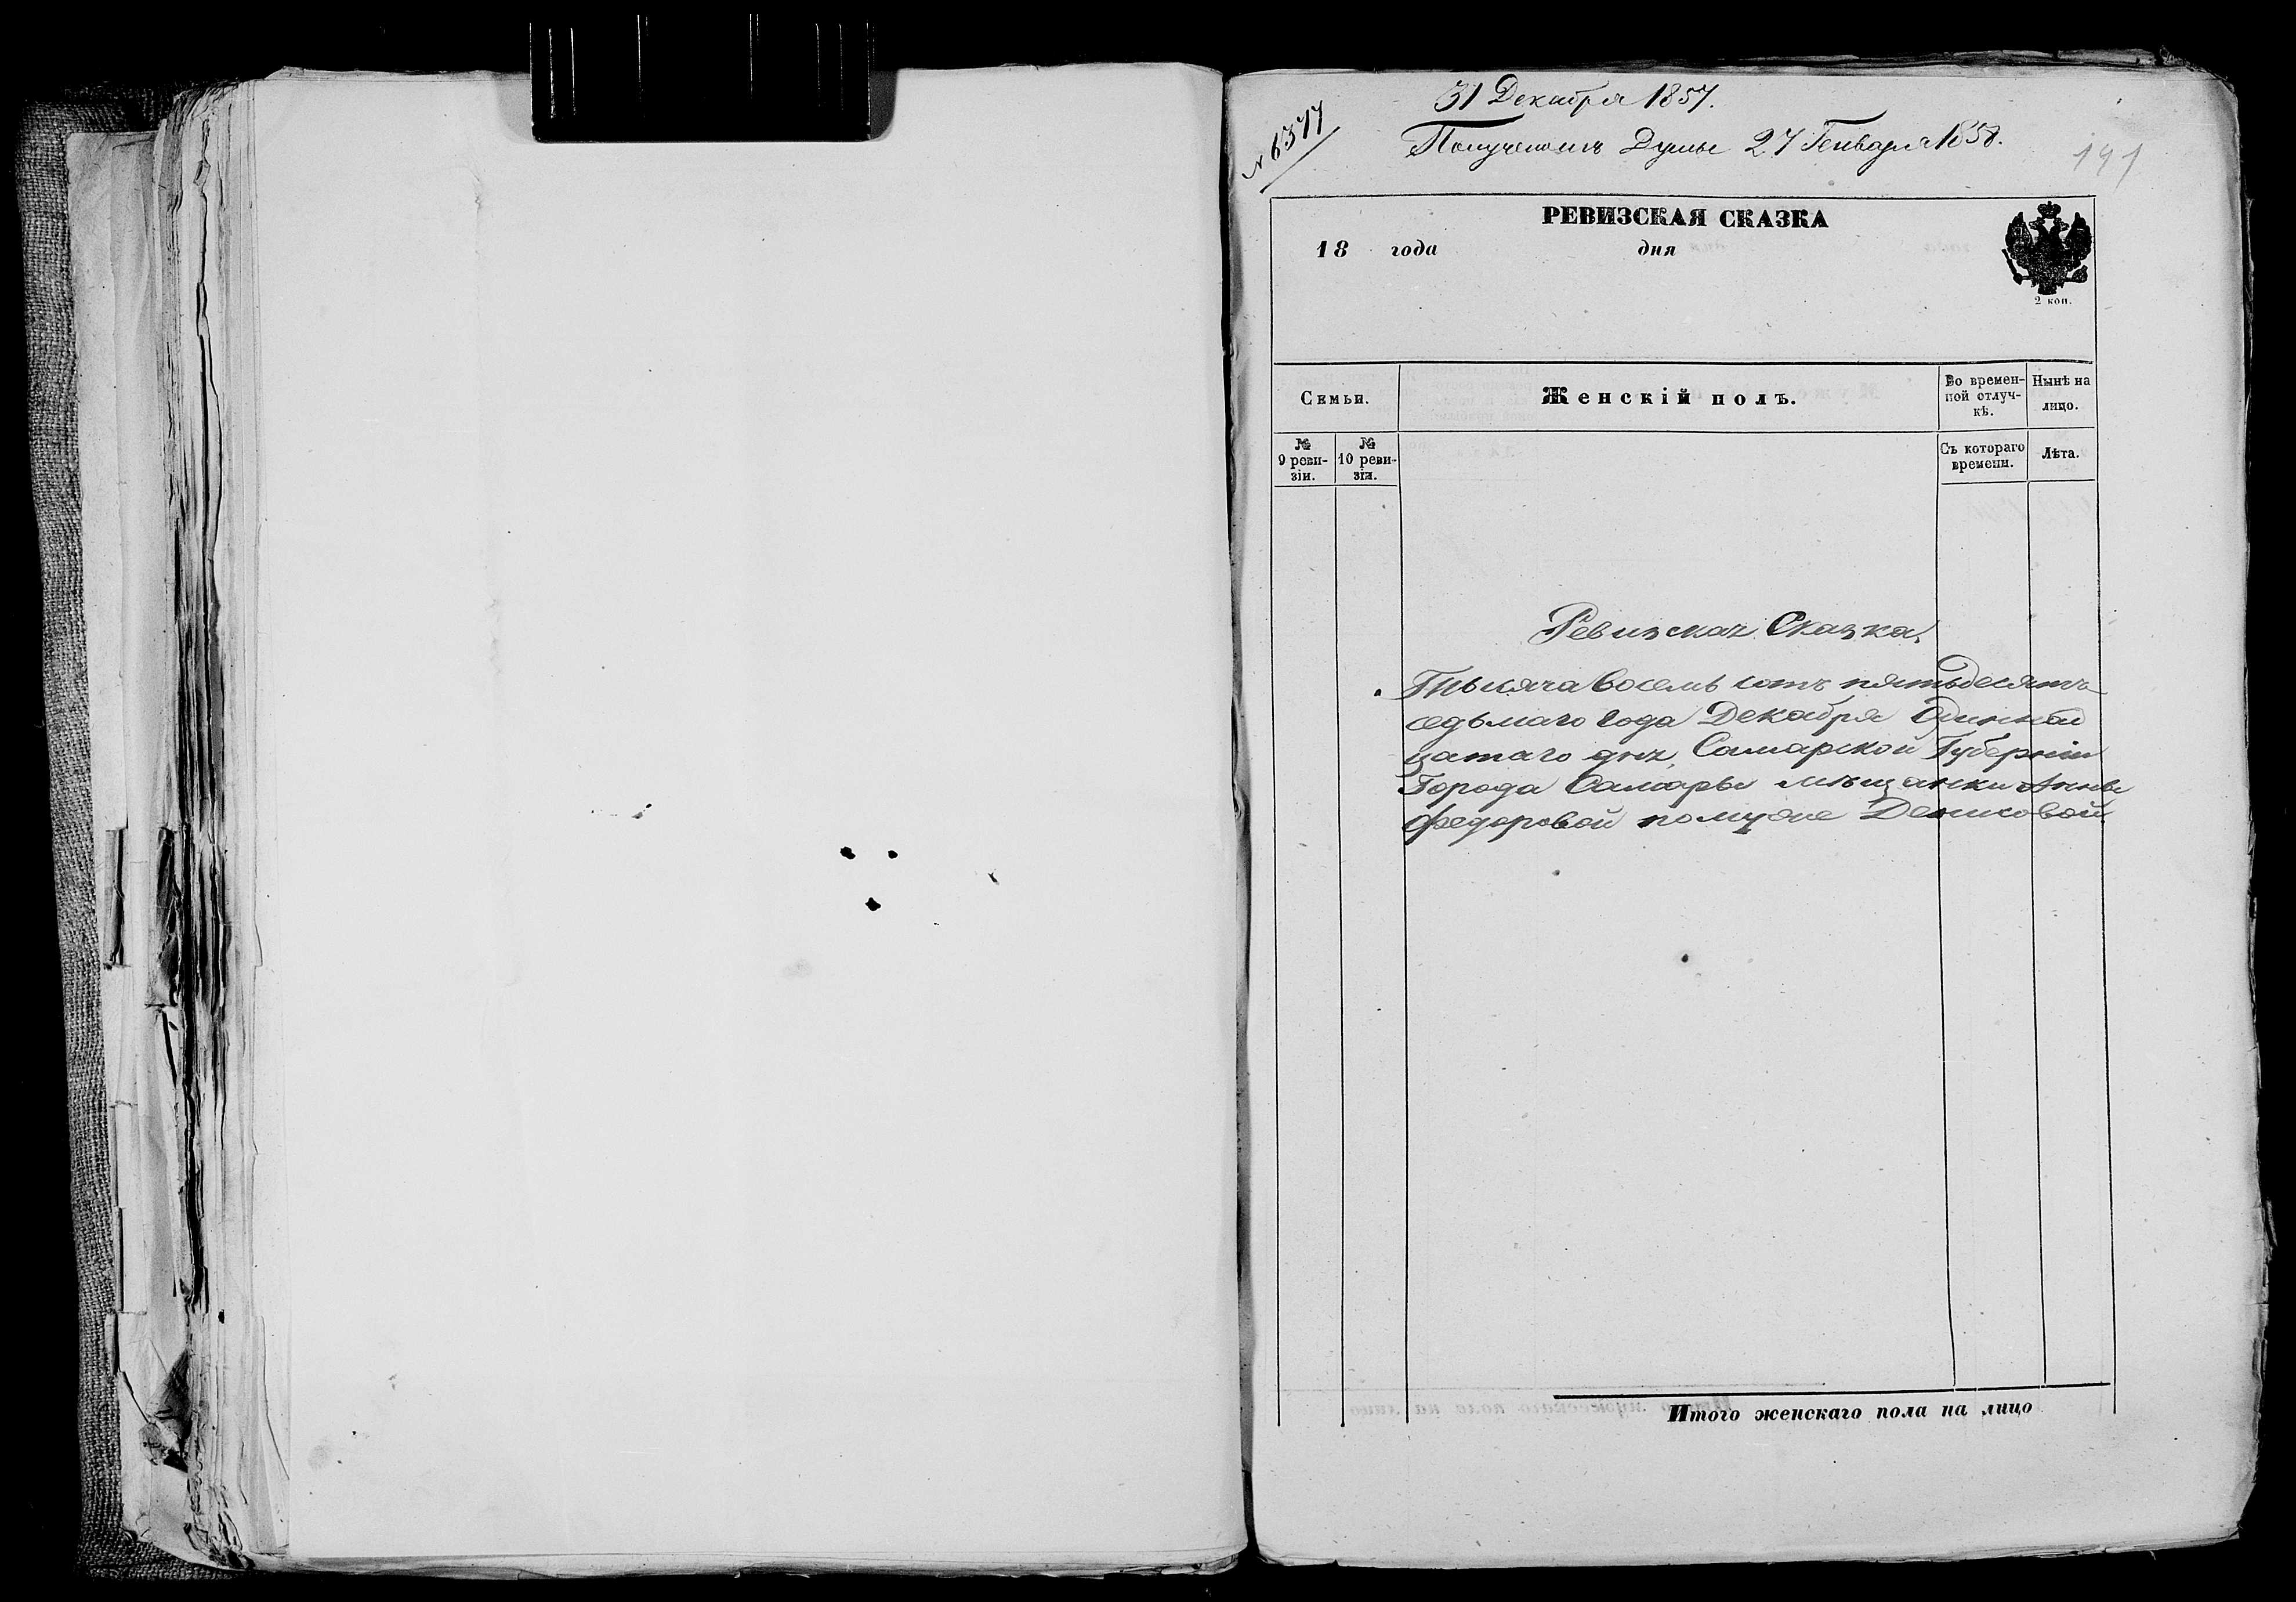 31 Декабря 1857.
№ 6377
Полученъ Думы 27 Генваря 1858.
191
РЕВИЗСКАЯ СКАЗКА
18 года дня
2 коп.
Семьи.
Женскій полъ.
Во времен-
ной отлуч-
кѣ.
Нынѣ на
лицо.
№
9 реви-
зіи.
№
10 реви-
зіи.
Съ котораго
времени.
Лѣта.
Ревизская Сказка,
Тысяча восемь сотъ пятьдесятъ
седьмаго года Декабря Одиннад
цатаго дня, Самарской Губерніи
Города Самары мѣщанки Анны
Федоровой помужѣ Денисовой
Итого женскаго пола на лицо